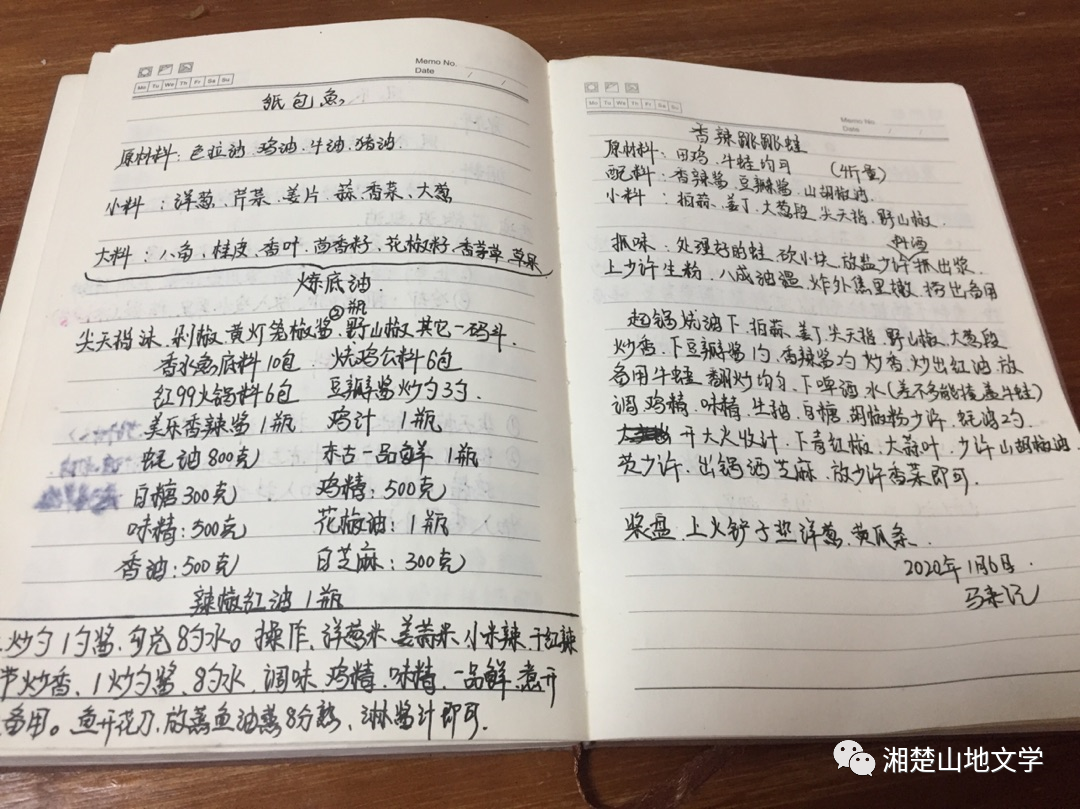 Memo No.
Date / /
Mo Tu We Th Fr Sa Su
纸包鱼
原材料:色拉油、鸡油、牛油、猪油.
小料:洋葱、芹菜、姜片、蒜、香菜、大葱
大料:八角、桂皮、香叶、茴香籽、花椒籽、香茅草、草果
炼底油.
②瓶
尖天椒沫、剁椒、黄灯笼椒酱、野山椒、其它一码斗.
香水鱼底料10包、烧鸡公料6包
红99火锅料6包 豆瓣酱炒勺3勺
美乐香辣酱1瓶 鸡汁 1瓶
蚝油800克 东古一品鲜 1瓶
白糖300克 鸡精:500克
味精:500克 花椒油:1瓶
香油:500克 白芝麻:300克
辣椒红油 1瓶
炒勺1勺酱,勾兑8勺水。操作、洋葱米、姜蒜米、小米辣、干红辣
节炒香、1炒勺酱、8勺水、调味、鸡精、味精、一品鲜、煮开
备用。鱼开花刀,放蒸鱼油蒸8分熟、淋酱汁即可.
Mo Tu We Th Fr Sa Su
Memo No.
Date / /
香辣跳跳蛙
原材料:田鸡、牛蛙均可 (4斤量)
配料:香辣酱、豆瓣酱、山胡椒油.
小料:拍蒜、姜丁、大葱段、尖天椒、野山椒.
料酒
抓味:处理好的蛙、砍小块、放盐少许抓出浆.
上少许生粉、八成油温、炸外焦里嫩、捞出备用
起锅烧油下、拍蒜、姜丁、尖天椒、野山椒、大葱段
炒香、下豆瓣酱1勺、香辣酱2勺炒香、炒出红油放
备用牛蛙翻炒均匀、下啤酒、水(差不多能掩盖牛蛙)
调鸡精、味精、生抽、白糖、胡椒粉少许、蚝油2勺.
开大火收汁、下青红椒、大蒜叶、少许山胡椒油.
芡少许、出锅洒芝麻、放少许香菜即可.
装盘、上火铲子垫洋葱、黄瓜条.
2020年1月6号.
湘楚山地文学